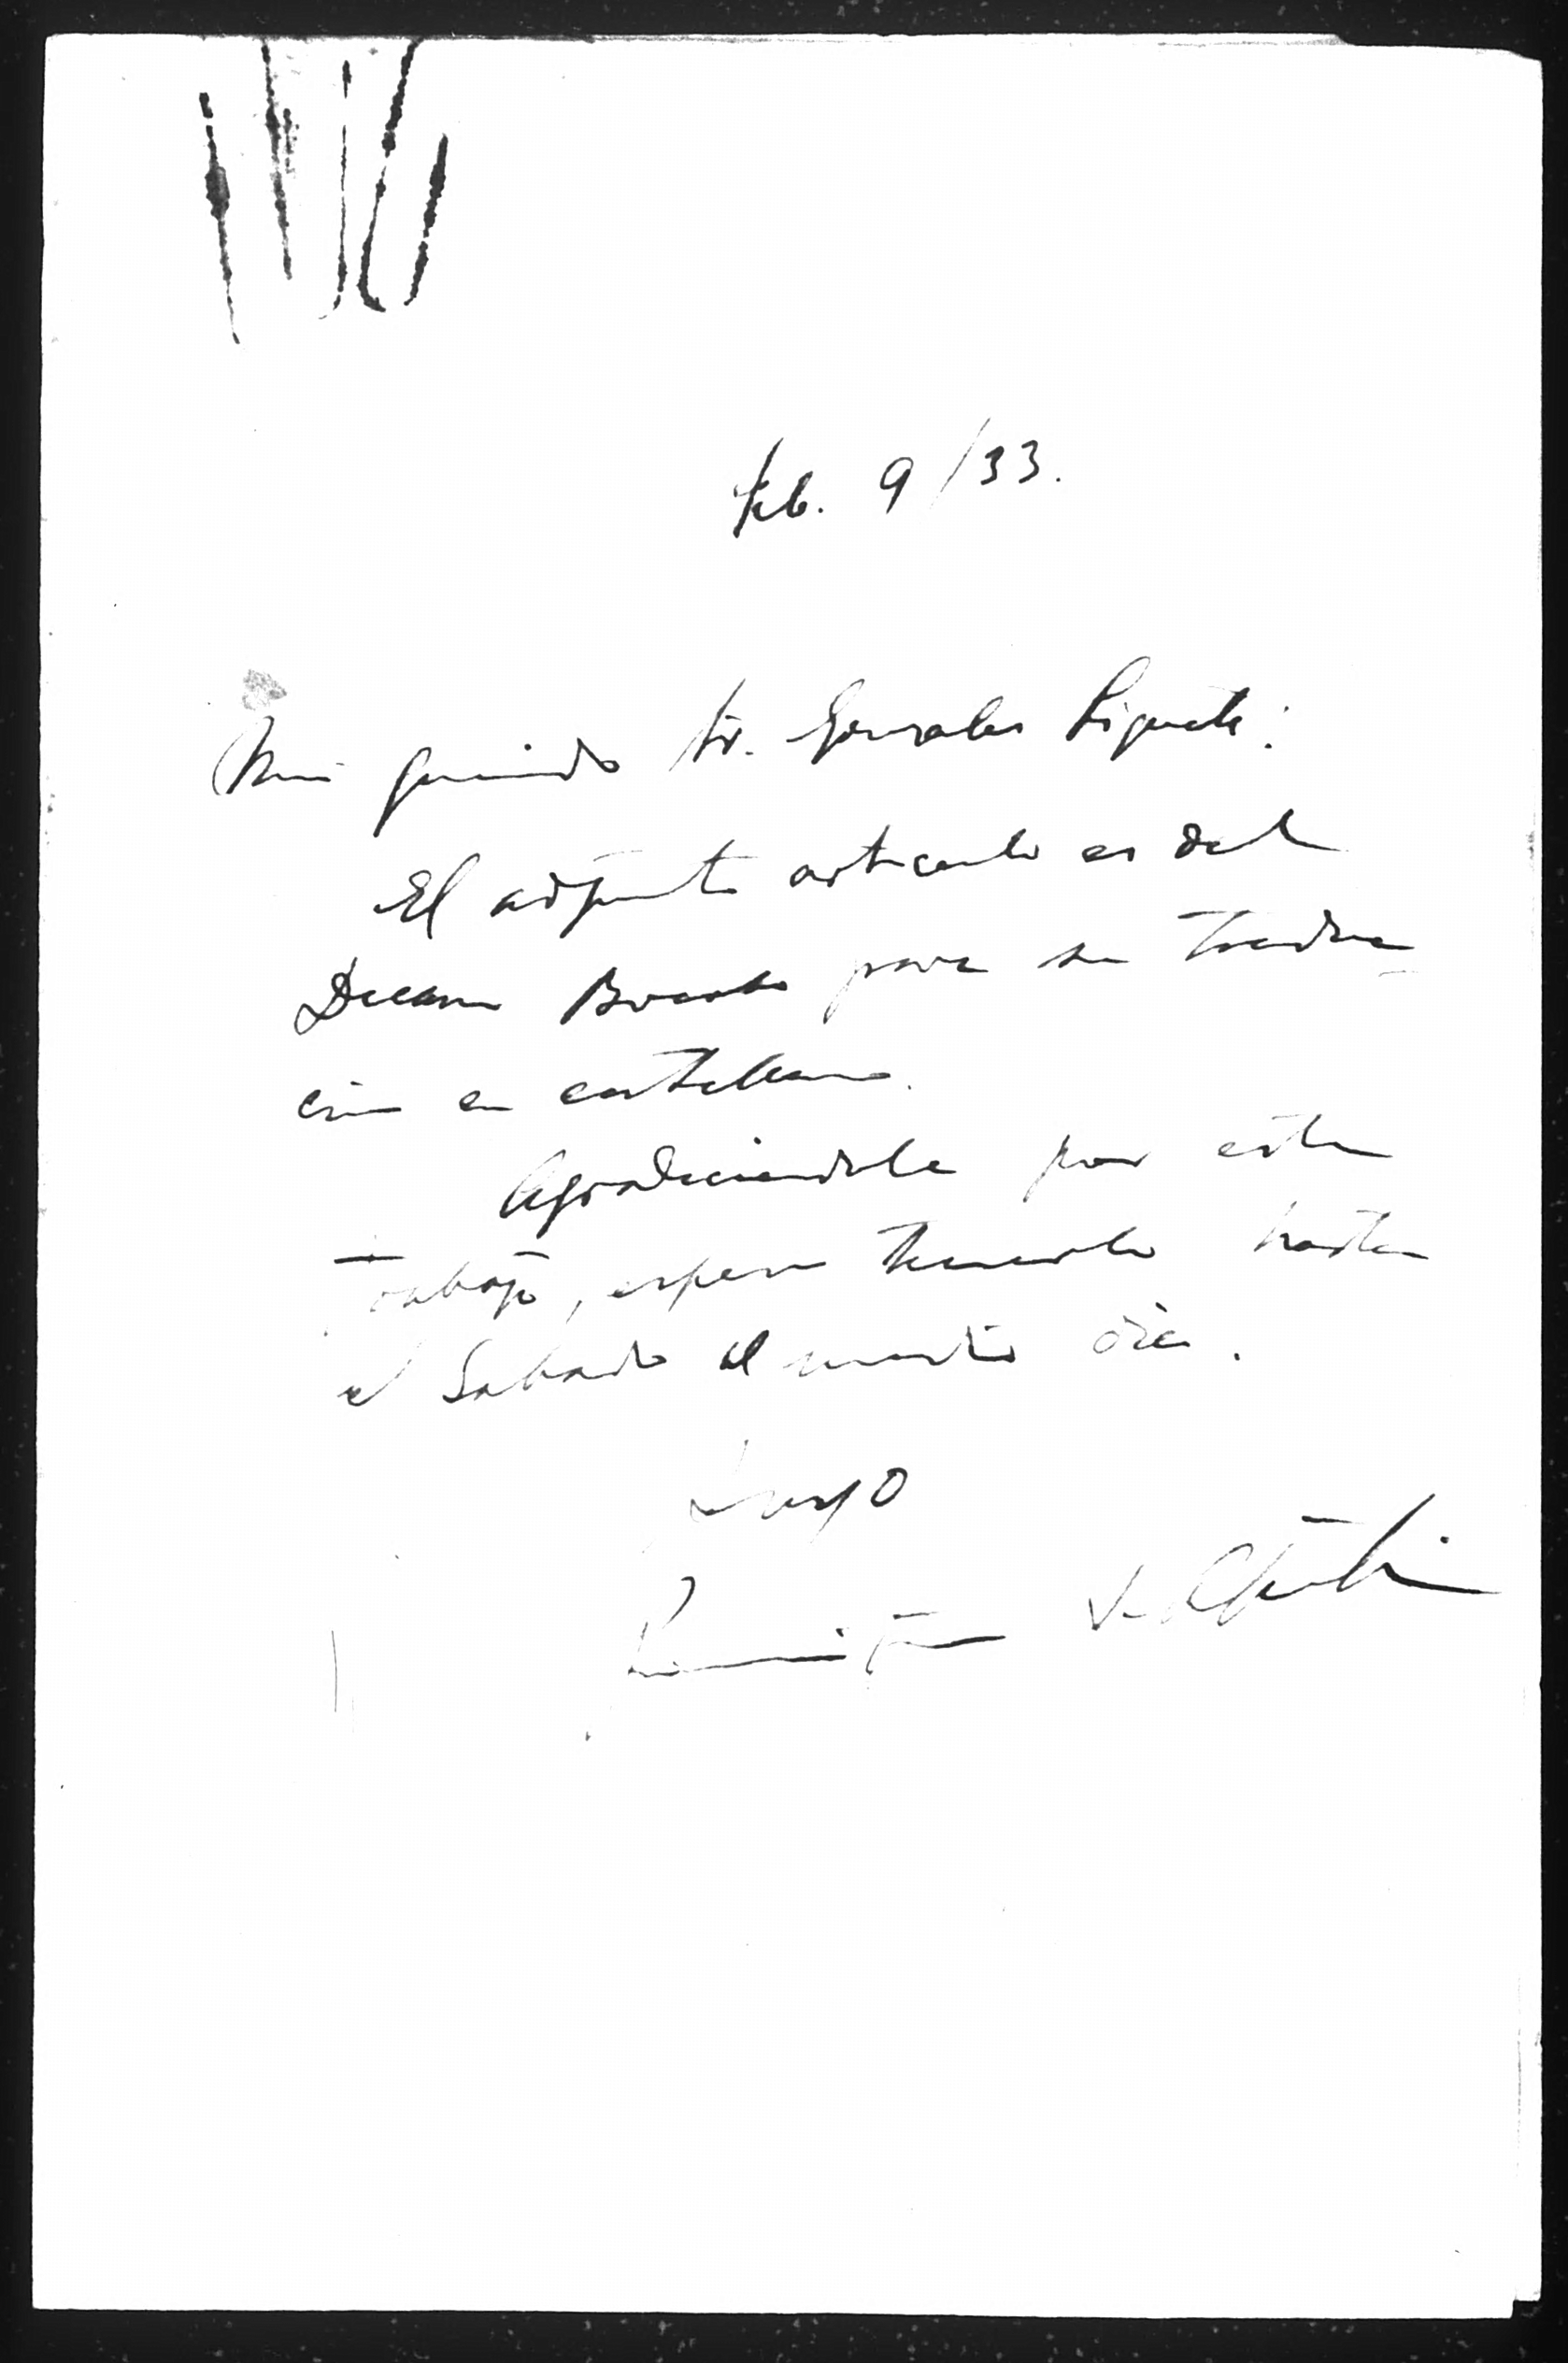 Feb. 9/33.
Mi querido Sr. Gonzalez Liquete:
El adjunto articulo es del
Decano Bocobo para su traduc
cion en castellano.
Agradeciendole por este
trabajo, espero tenerlo hasta
el Sabado al medio dia.
Suyo